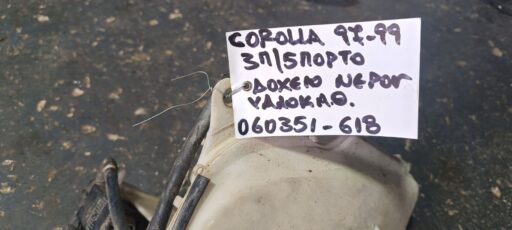 COROLLA 97-99
3Π/5ΠΟΡΤΟ
ΔΟΧΕΙΟ ΝΕΡΟΥ
ΥΑΛΟΚΑΘ.
060351-618